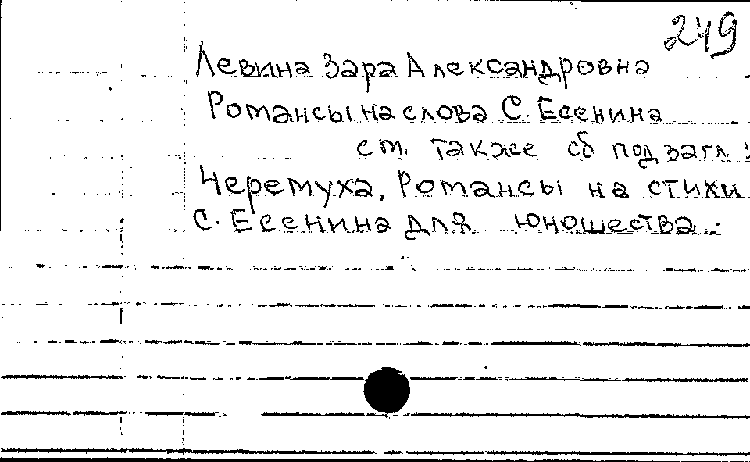 249
Левина Зара Александровна
Романсы на слова С. Есенина
см. также сб под загл :
Черемуха, Романсы на стихи
С. Есенина для юношества.